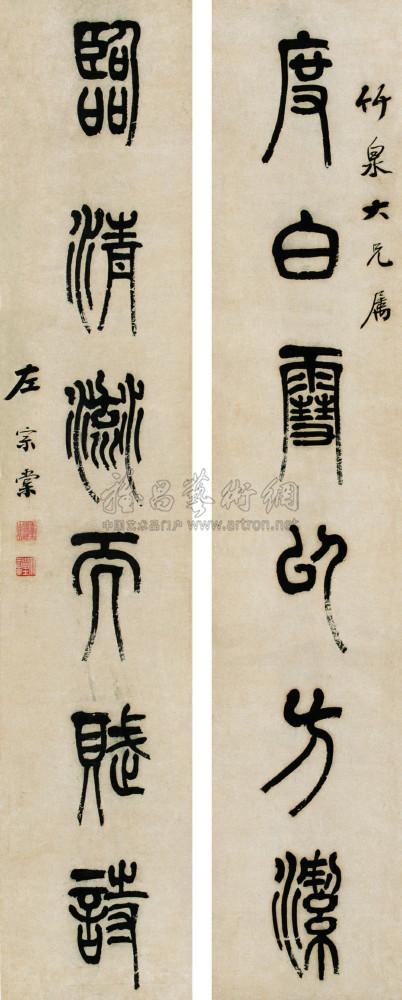 竹泉大兄属
度白雪以方潔
臨清流而賦詩
左宗棠
雅昌藝術網
中国艺术品门户 www.artron.net